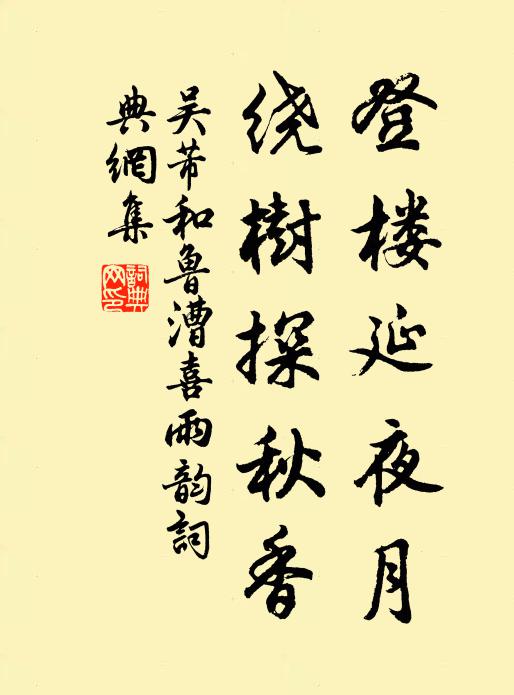 登楼延夜月
绕樹探秋香
吴芾和鲁漕喜雨韵詞
典網集
詞典网印